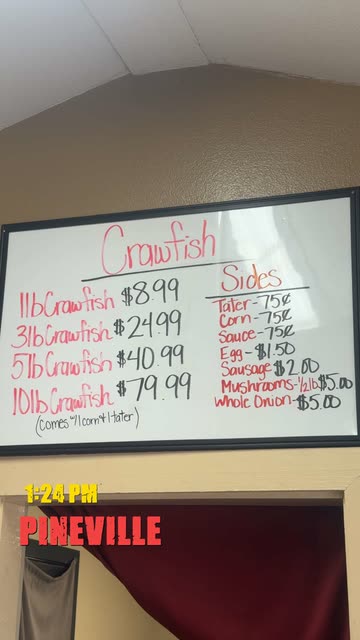 Crawfish
1lb Crawfish $8.99
3lb Crawfish $24.99
5lb Crawfish $40.99
10lb Crawfish $79.99
(comes w/1 corn & 1 tater)
Sides
Tater - 75¢
Corn - 75¢
Sauce - 75¢
Egg - $1.50
Sausage $2.00
Mushrooms - 1/2 lb $5.00
Whole Onion - $5.00
1:24 PM
PINEVILLE